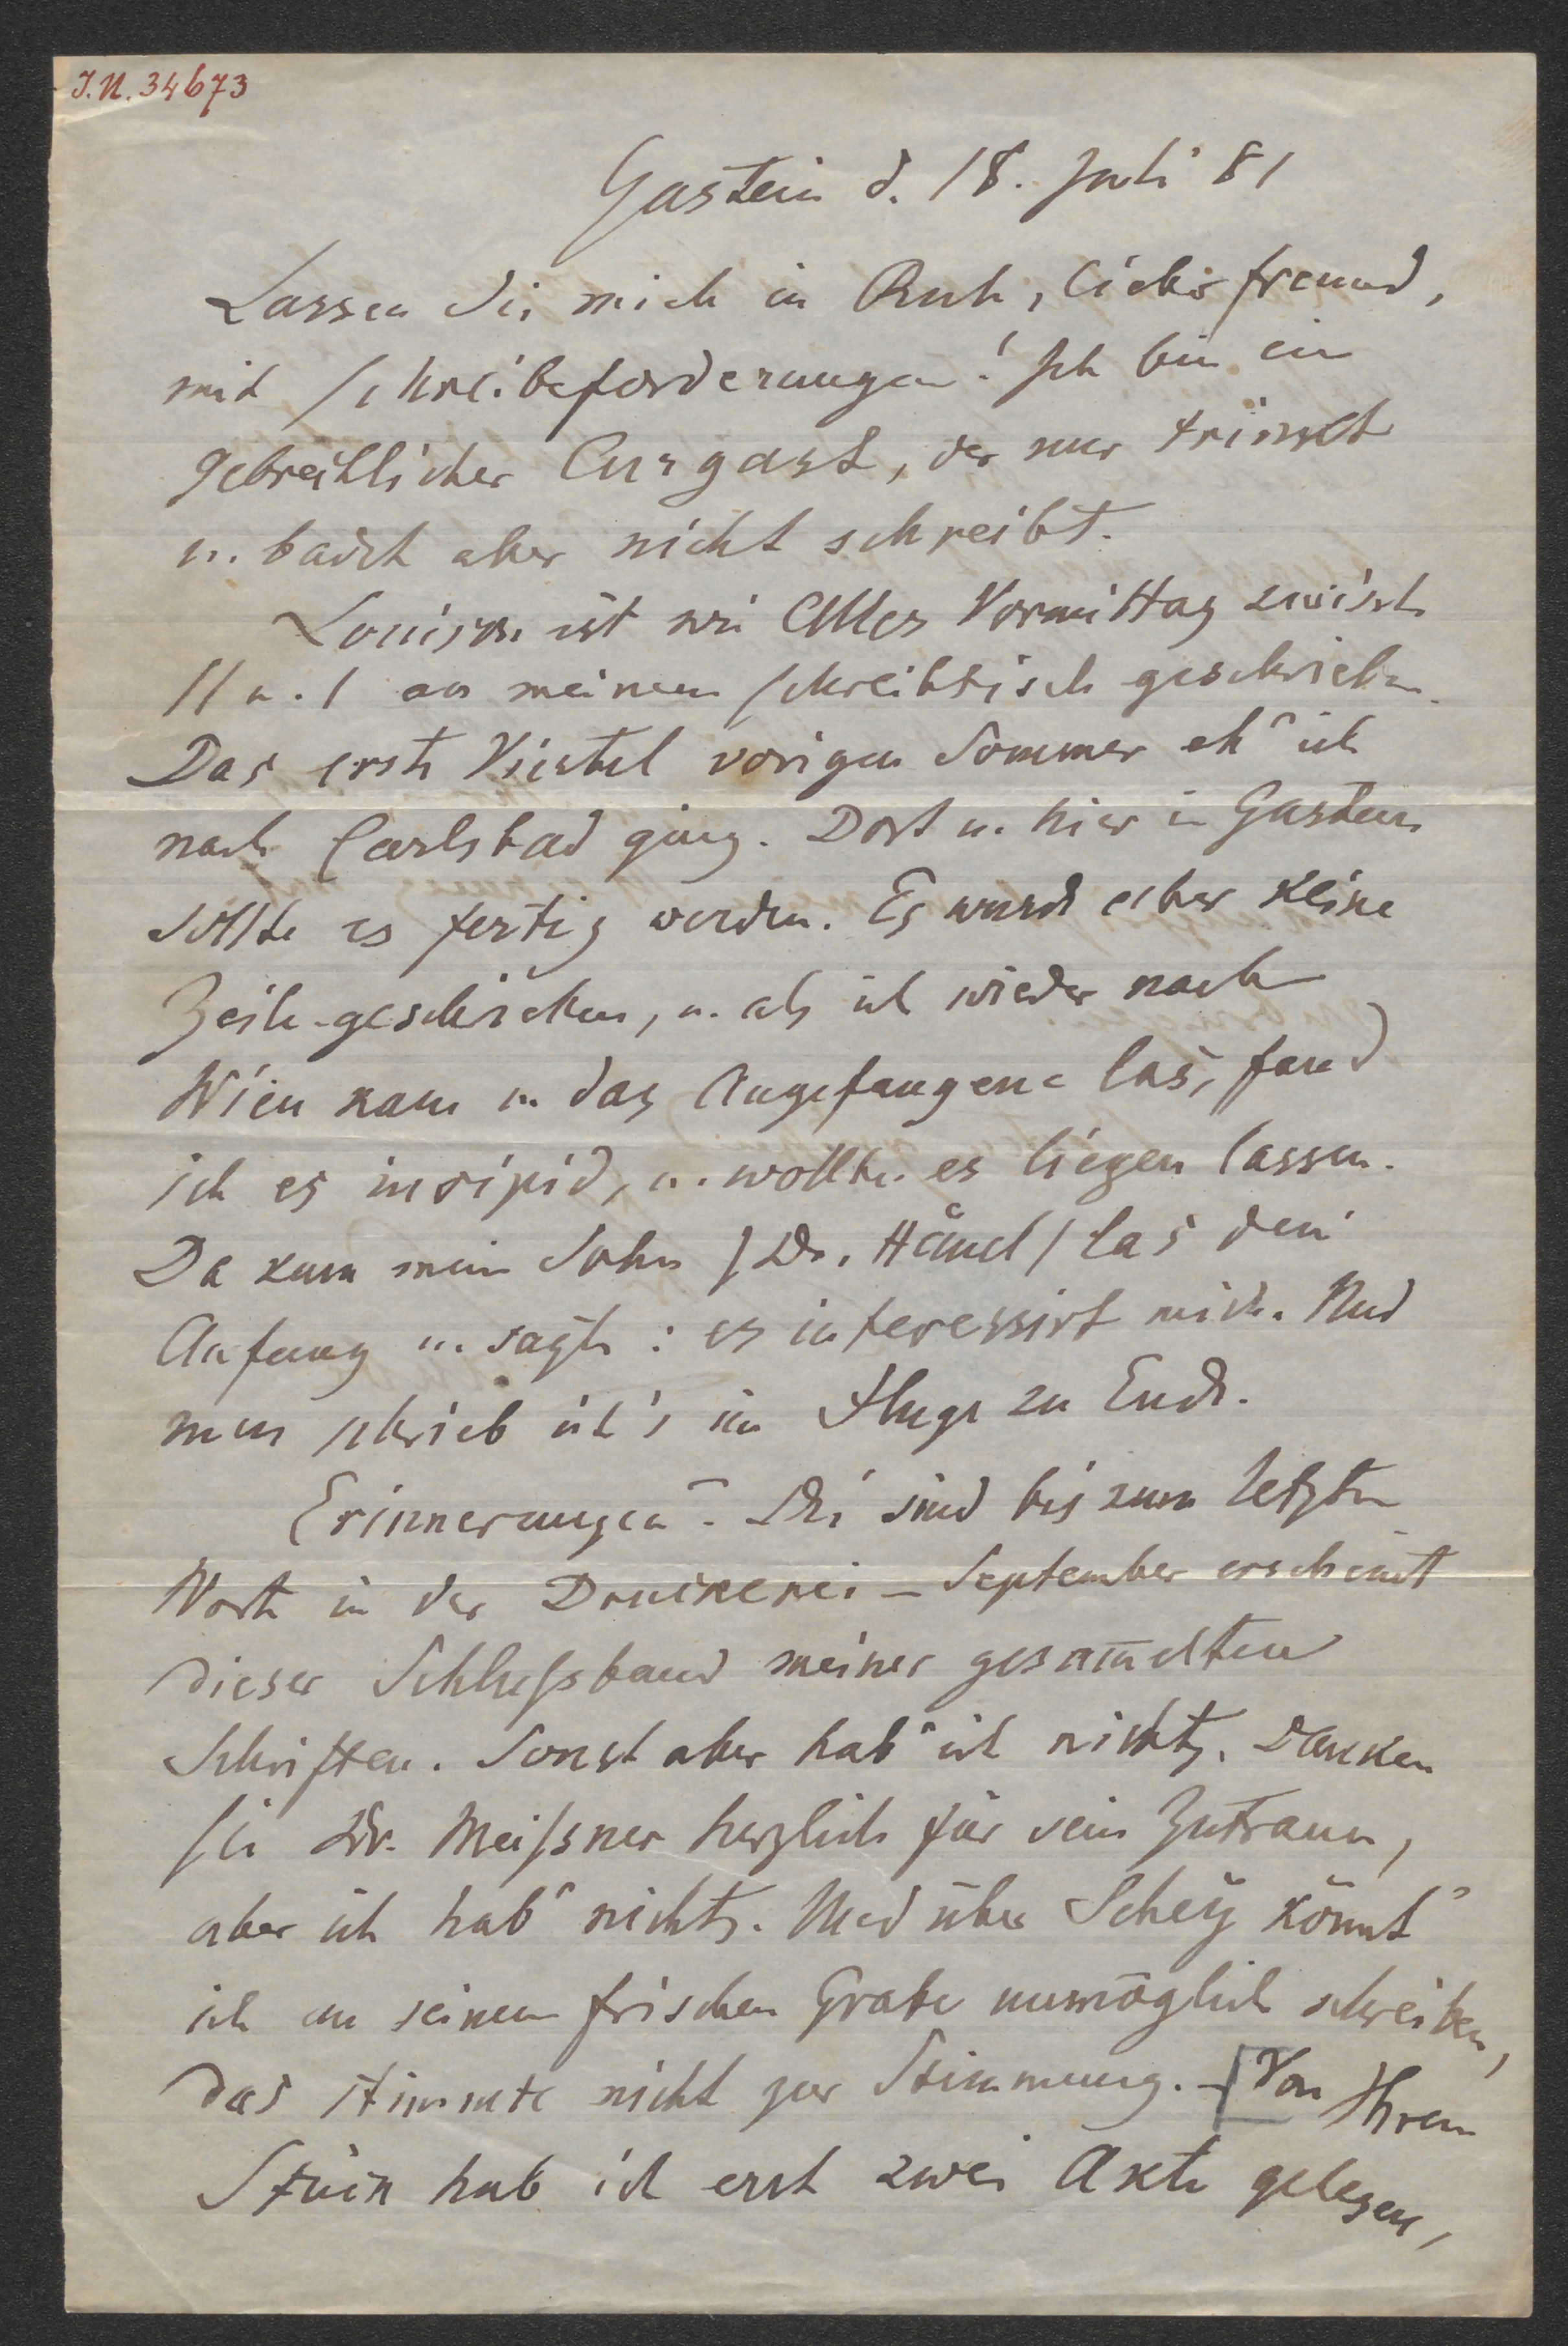 I.N. 34673
Gastein d. 18. Juli 81
Lassen Sie mich in Ruh, lieber Freund,
mit Schreibeforderungen! Ich bin ein
gebrechlicher Curgast, der nur trinkt
u. badet aber nicht schreibt.
Louison ist wie Alles Vormittag zwisch
11 u. 1 an meinem Schreibtisch geschrieben.
Das erste Viertel vorigen Sommer eh' ich
nach Carlsbad ging. Dort u. hier in Gastein
sollte es fertig werden. Es wurde aber keine
Zeile geschrieben, u. als ich wieder nach
Wien kam u. das Angefangene las, fand
ich es insipid, u. wollte es liegen lassen.
Da kam mein Sohn /Dr. Hänel/ las den
Anfang u. sagte: es interessirt mich. Und
nun schrieb ich's im Fluge zu Ende.
Erinnerungen? Die sind bis zum letzten
Worte in der Druckerei – September erscheint
dieser Schlussband meiner gesam̄elten
Schriften. Sonst aber hab' ich nichts. Danken
Sie Dr. Meissner herzlich für sein Zutrauen,
aber ich hab' nichts. Und über Schey könnt'
ich an seinem frischen Grabe unmöglich schreiben,
das stimmte nicht zur Stimmung. – [Von Ihrem
Stück hab ich erst zwei Akte gelesen,